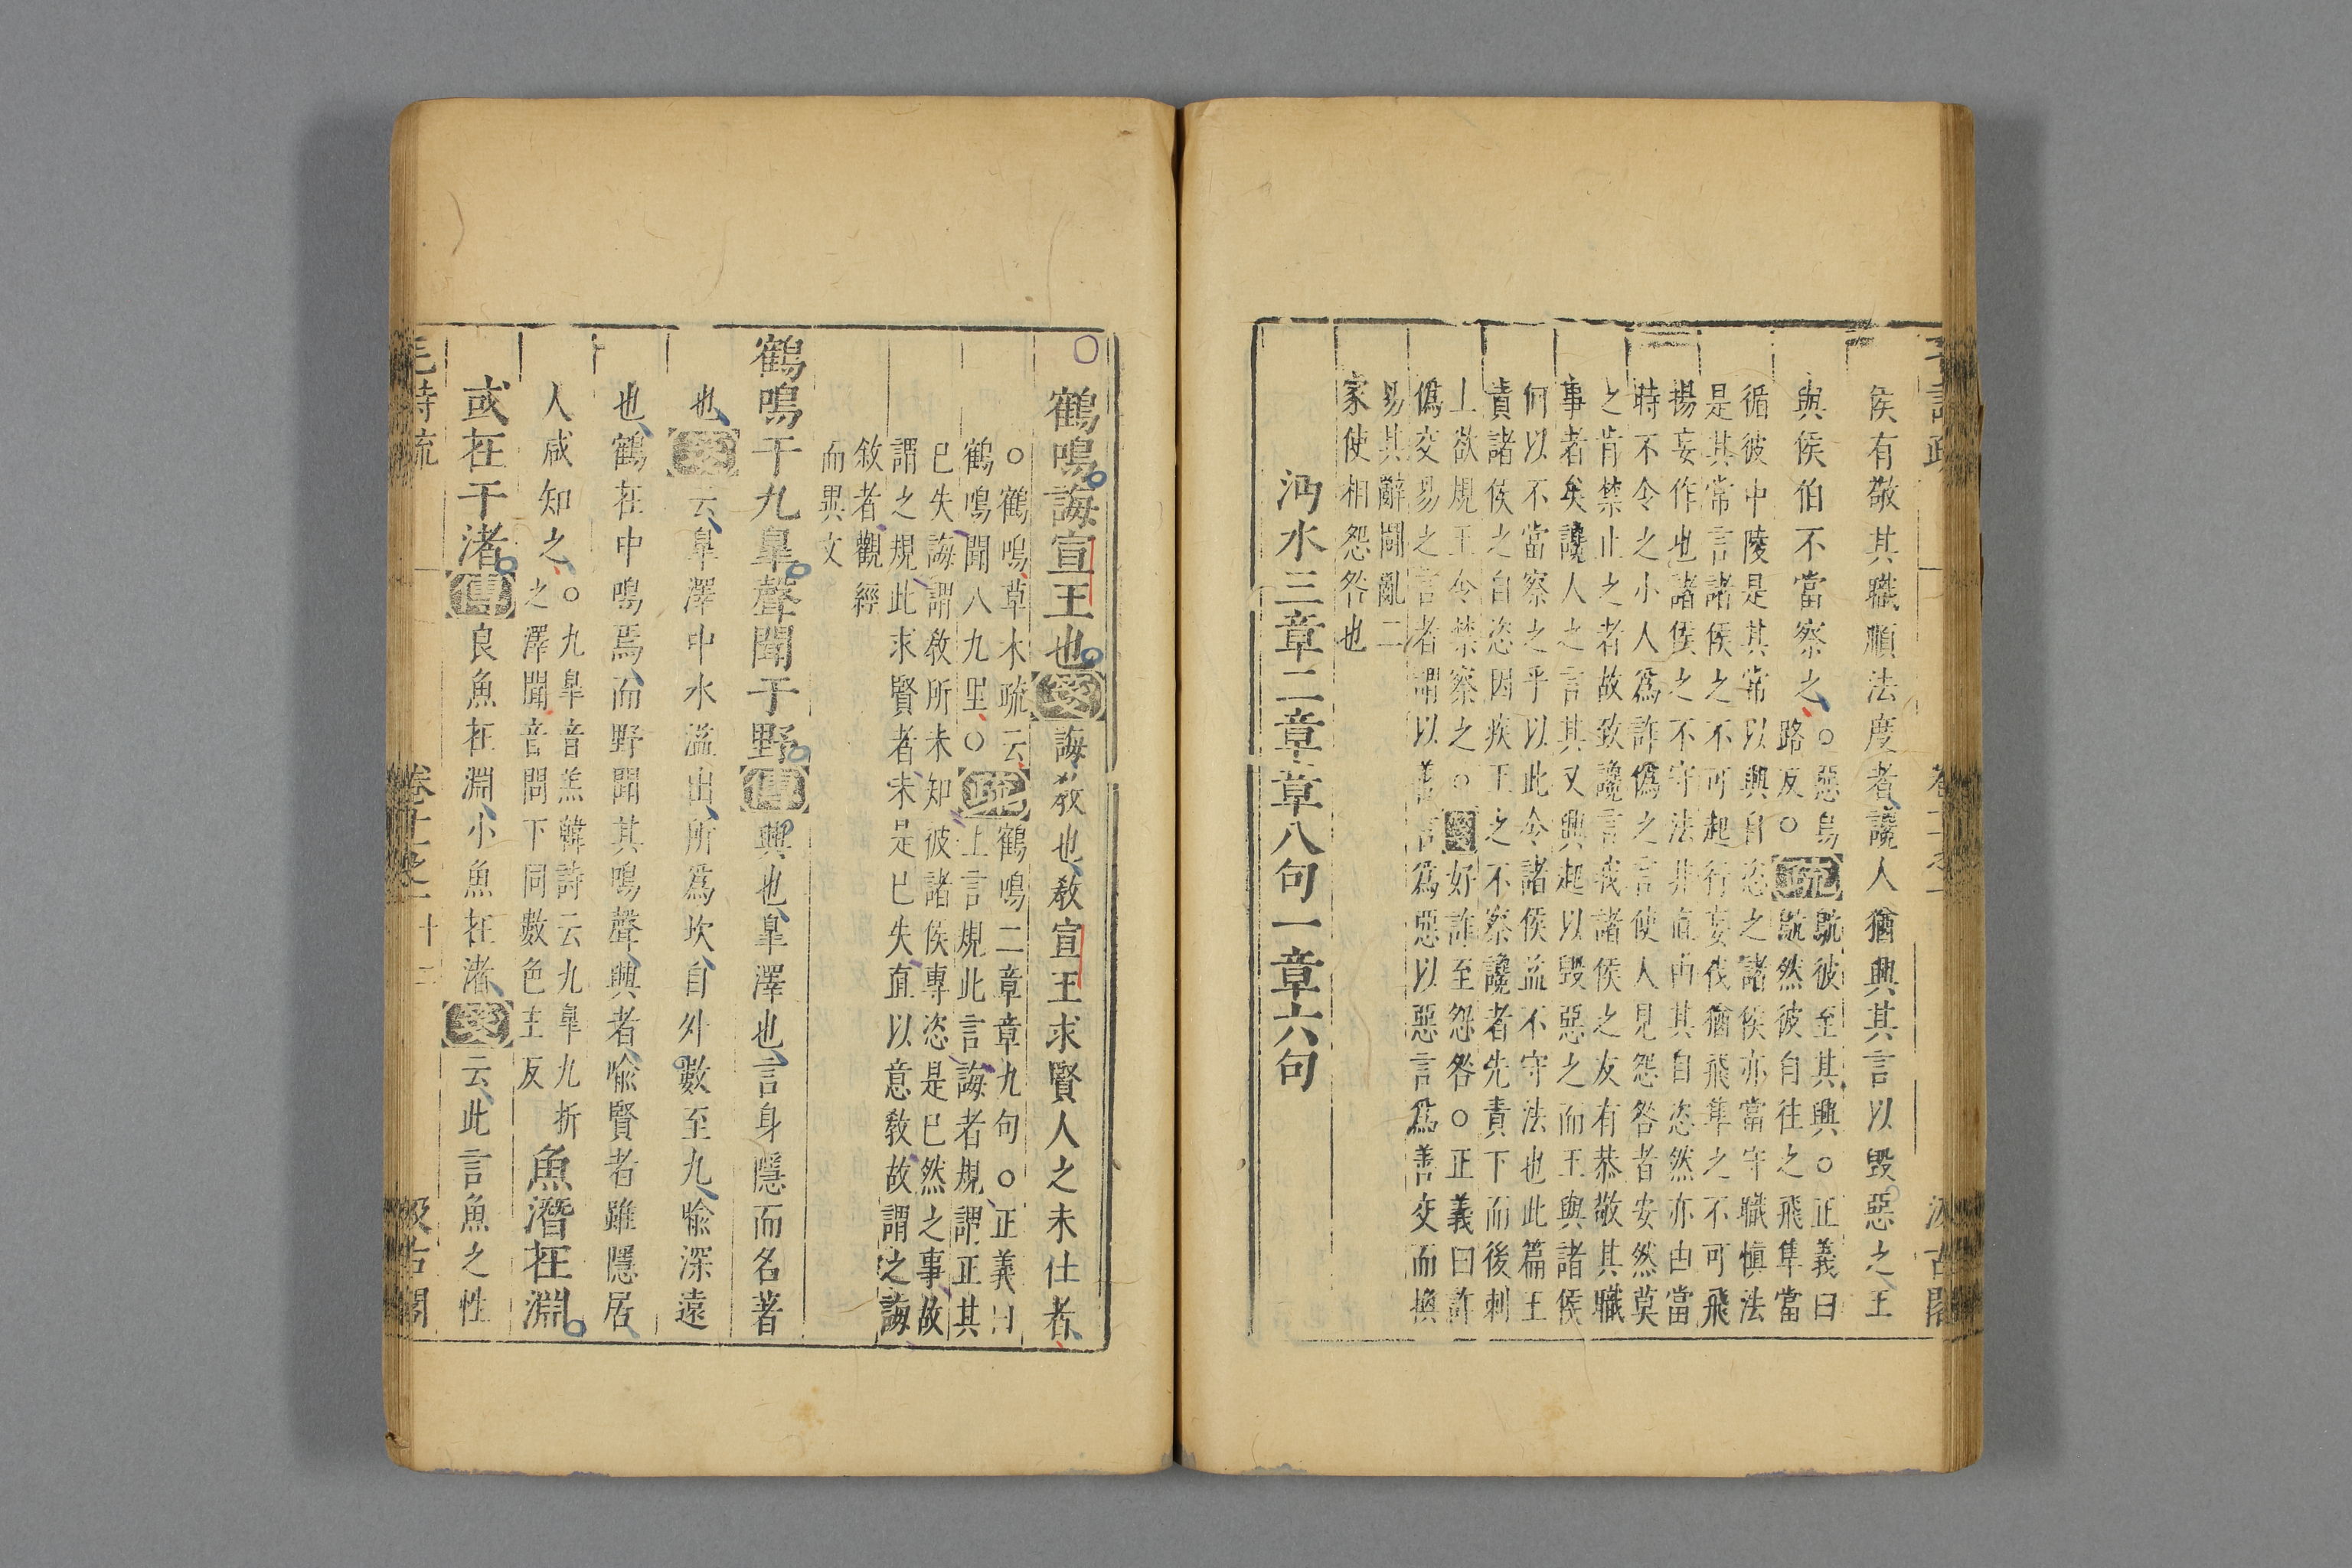 侯有敬其職順法度者讒人猶興其言以毀惡之王
與侯伯不當察之○惡烏
路反○疏鴥彼至其興○正義曰
鴥然彼自往之飛隼當
循彼中陵是其常以興自恣之諸侯亦當守職愼法
是其常言諸侯之不可起行妄伐猶飛隼之不可飛
揚妄作也諸侯之不守法井直由其自恣然亦由當
時不令之小人爲詐僞之言使人見怨咎者安然莫
之肯禁止之者故致讒言我諸侯之友有恭敬其職
事者矣讒人之言其又興起以毀惡之而王與諸侯
何以不當察之乎以此今諸侯益不守法也此篇王
責諸侯之自恣因疾王之不察讒者先責下而後刺
上欲規王令禁察之○箋好詐至怨咎○正義曰詐
僞交易之言者謂以善言爲惡以惡言爲善交而換
易其辭鬬亂二
家使相怨咎也
沔水三章二章章八句一章六句
鶴鳴誨宣王也箋誨教也教宣王求賢人之未仕者
○鶴鳴草木疏云
鶴鳴聞八九里○疏鶴鳴二章章九句○正義曰
上言規此言誨者規謂正其
已失誨謂教所未知彼諸侯專恣是已然之事故
謂之規此求賢者未是已失直以意教故謂之誨
敘者觀經
而異文
鶴鳴于九皐聲聞于野傳興也皐澤也言身隱而名著
也箋云皐澤中水溢出所爲坎自外數至九喩深遠
也鶴在中鳴焉而野聞其鳴聲興者喩賢者雖隱居
人咸知之○九皐音羔韓詩云九皐九折
之澤聞音問下同數色主反魚潛在淵
或在于渚傳良魚在淵小魚在渚箋云此言魚之性
毛詩疏 卷十一之一 十二 汲古閣